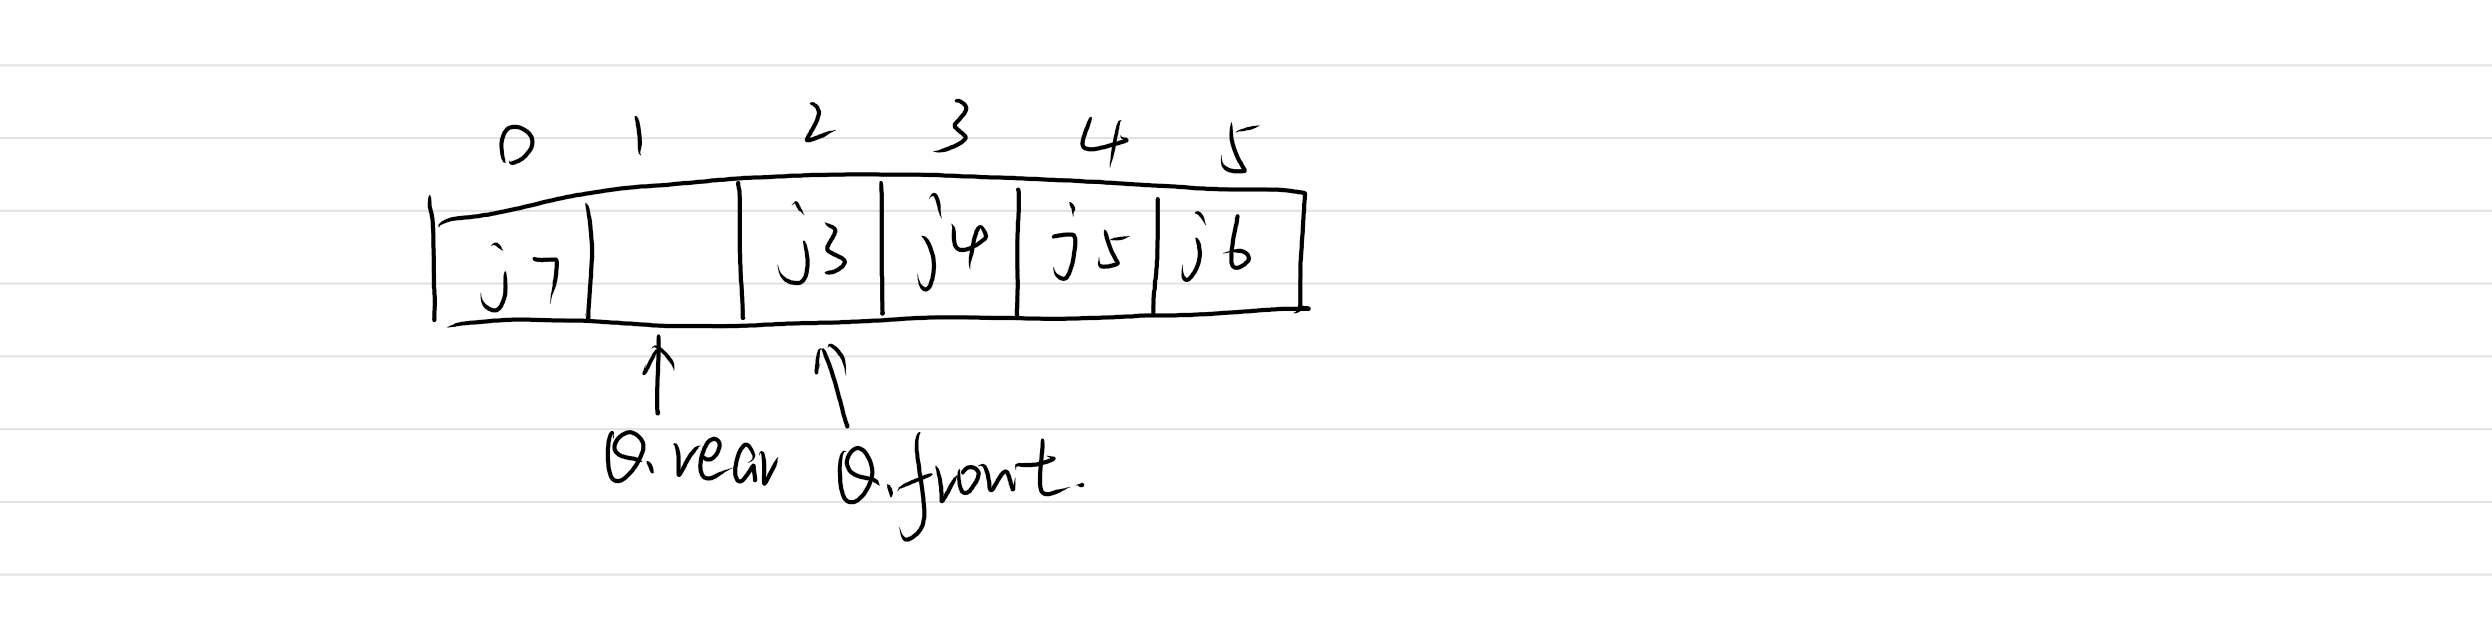 0 1 2 3 4 5
j7 j3 j4 j5 j6
Q.rear Q.front.